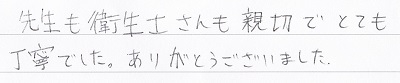 先生も衛生士さんも親切でとても
丁寧でした。ありがとうございました.